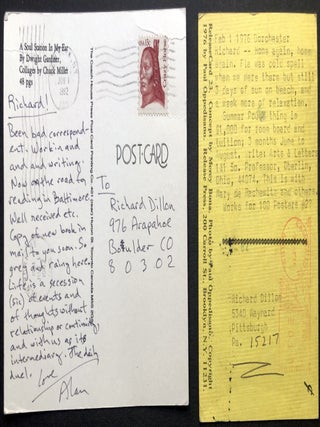 A Soul Station In My Ear
By Dwight Gardner,
Collages by Chuck Miller
48 pgs
Richard!
Been bad correspond-
ent. Workin a and
and and writing.
Now on the road to
reading in Baltimore.
Well received etc.
Copy of new book in
mail to you soon. So
grey and raing here.
Life is a secession
(sic) of events and
of thoughts without
relationship or continuity
and with us as its
intermediary. The daily
duel.
Love
Alan
USA 13c
Crazy Horse
POST-CARD
To
Richard Dillon
976 Arapahoe
Boulder CO
80302
Feb 1 1976 Dorchester
Richard -- home again, home
again. Fla was cold spell
when we were there but still
days of sun on beach, and
week more of relaxation.
Summer Poetry thing is
$1,000 for room board and
tuition; 3 months June to
August. Write: Arts & Letters
141 So. Professor, Oberlin,
Ohio,
Mary de Rachewiltz and others.
Works for 100 Posters #27
Richard Dillon
5340 Waynard
Pittsburgh
Pa. 15217
1976 by Paul Oppedisano. Release Press, 200 Carroll St. Brooklyn, N.Y. 11231.